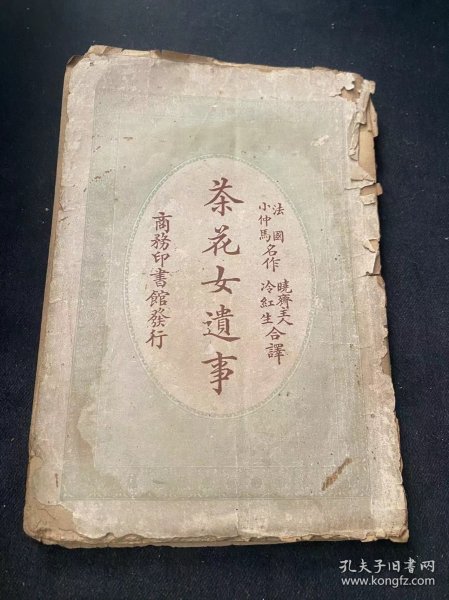 法國
小仲馬名作
曉齋主人
冷紅生合譯
茶花女遺事
商務印書館發行
孔夫子旧书网
www.kongfz.com